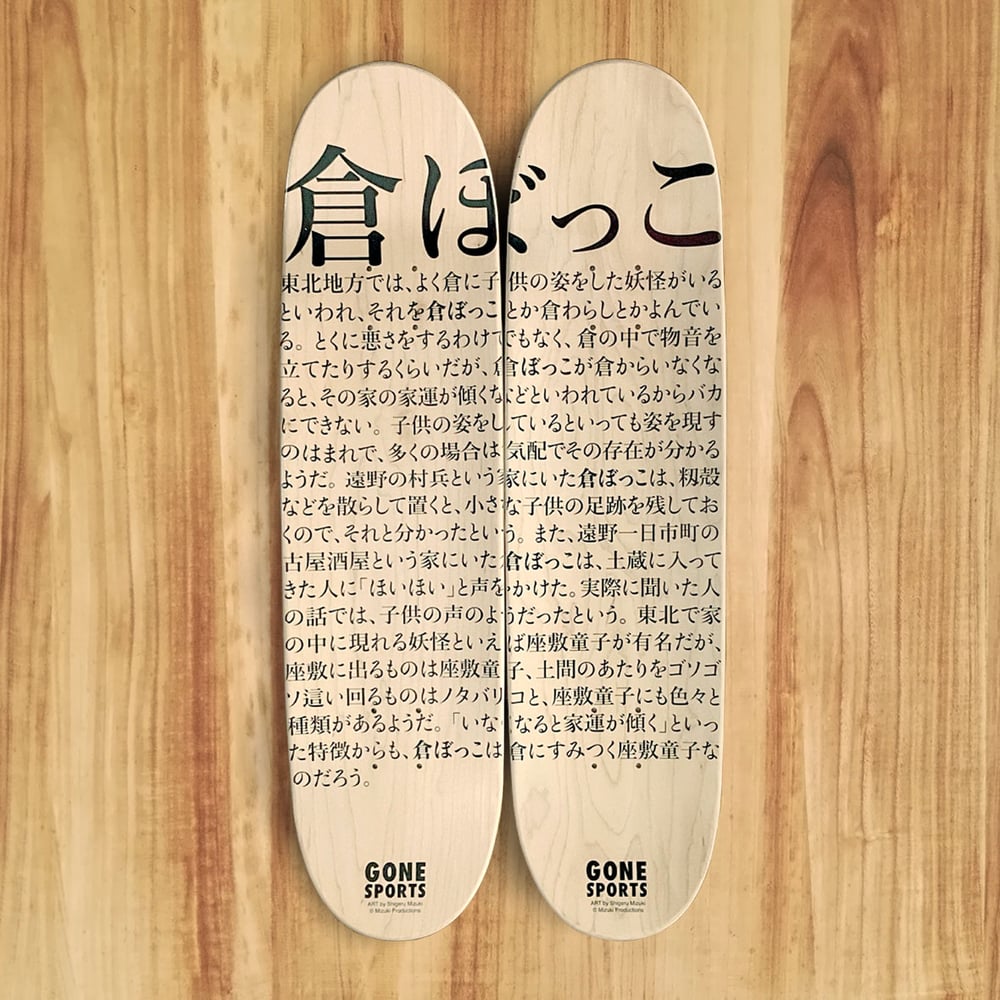 倉ぼっこ
東北地方では、よく倉に子供の姿をした妖怪がいる
といわれ、それを倉ぼっことか倉わらしとかよんでい
る。とくに悪さをするわけでもなく、倉の中で物音を
立てたりするくらいだが、倉ぼっこが倉からいなくな
ると、その家の家運が傾くなどといわれているからバカ
にできない。子供の姿をしているといっても姿を現す
のはまれで、多くの場合は気配でその存在が分かる
ようだ。遠野の村兵という家にいた倉ぼっこは、籾殻
などを散らして置くと、小さな子供の足跡を残してお
くので、それと分かったという。また、遠野一日市町の
古屋酒屋という家にいた倉ぼっこは、土蔵に入って
きた人に「ほいほい」と声をかけた。実際に聞いた人
の話では、子供の声のようだったという。東北で家
の中に現れる妖怪といえば座敷童子が有名だが、
座敷に出るものは座敷童子、土間のあたりをゴソゴ
ソ這い回るものはノタバリコと、座敷童子にも色々と
種類があるようだ。「いなくなると家運が傾く」といっ
た特徴からも、倉ぼっこは倉にすみつく座敷童子な
のだろう。
GONE
SPORTS
ART by Shigeru Mizuki
© Mizuki Productions
GONE
SPORTS
ART by Shigeru Mizuki
© Mizuki Productions